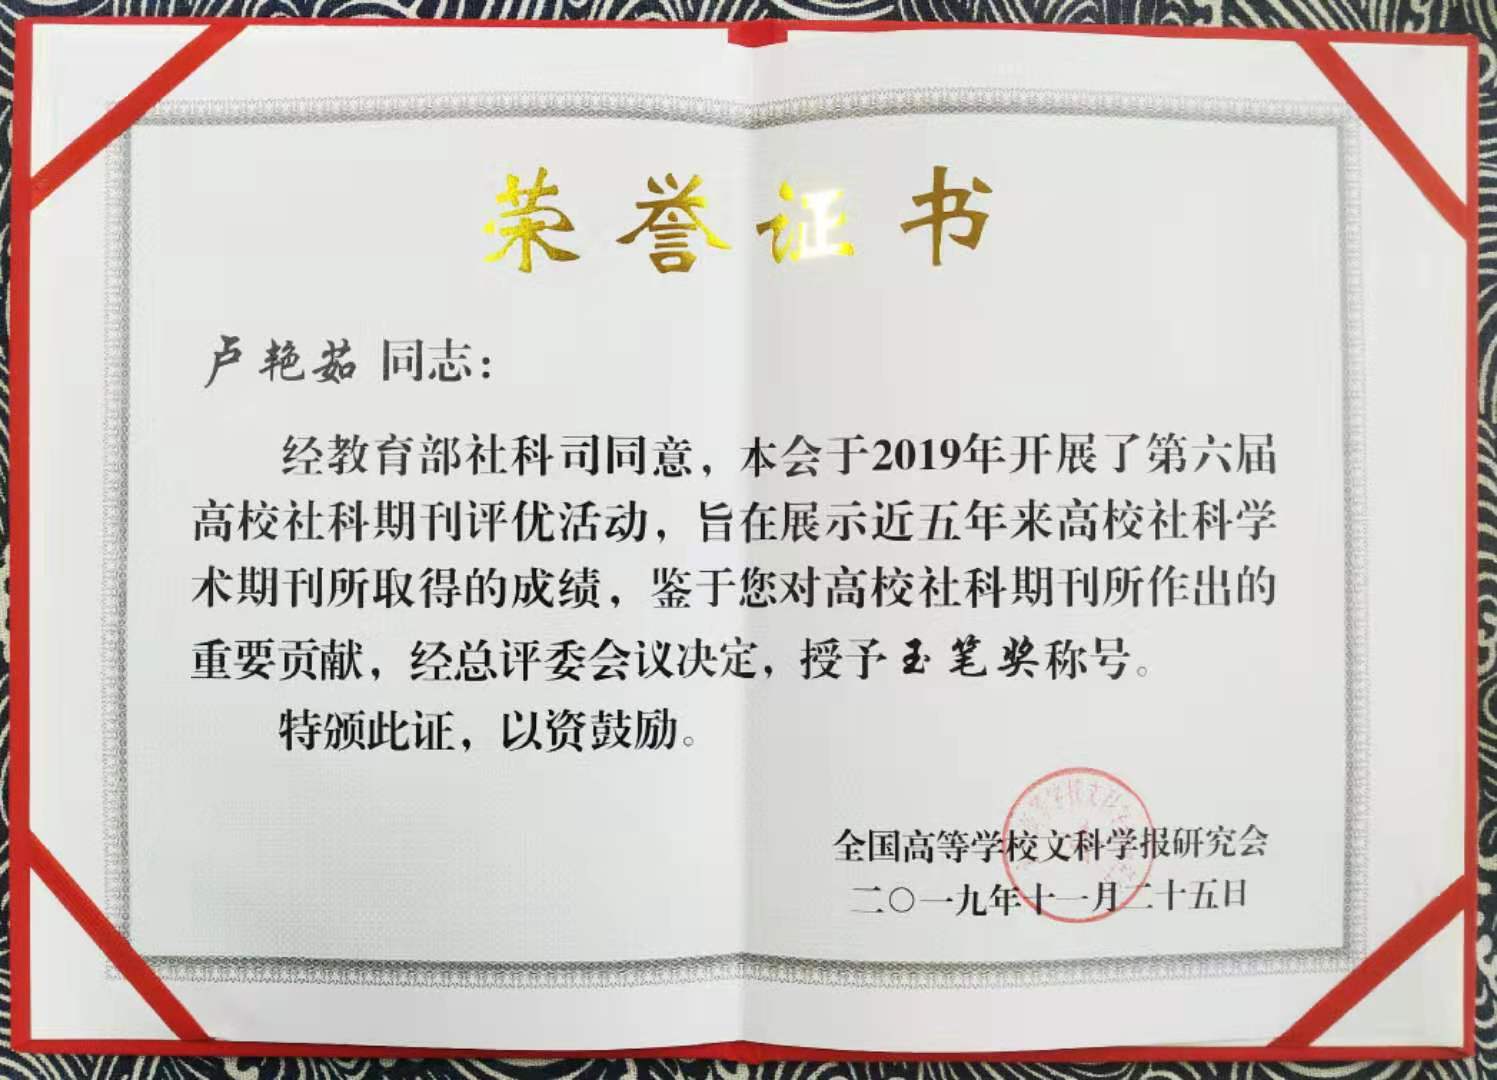 荣誉证书
卢艳茹 同志：
经教育部社科司同意，本会于2019年开展了第六届
高校社科期刊评优活动，旨在展示近五年来高校社科学
术期刊所取得的成绩，鉴于您对高校社科期刊所作出的
重要贡献，经总评委会议决定，授予玉笔奖称号。
特颁此证，以资鼓励。
全国高等学校文科学报研究会
二〇一九年十一月二十五日